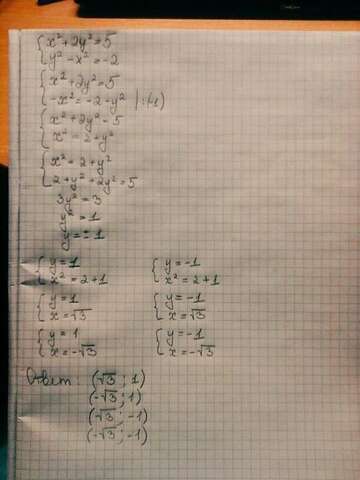 { x² + 2y² = 5
{ y² - x² = -2
{ x² + 2y² = 5
{ -x² = -2 - y² | :(-1)
{ x² + 2y² = 5
{ x² = 2 + y²
{ x² = 2 + y²
{ 2 + y² + 2y² = 5
3y² = 3
y² = 1
y = ± 1
{ y = 1 { y = -1
{ x² = 2 + 1 { x² = 2 + 1
{ y = 1 { y = -1
{ x = √3 { x = √3
{ y = 1 { y = -1
{ x = -√3 { x = -√3
Ответ: (√3 ; 1)
(-√3 ; 1)
(√3 ; -1)
(-√3 ; -1)